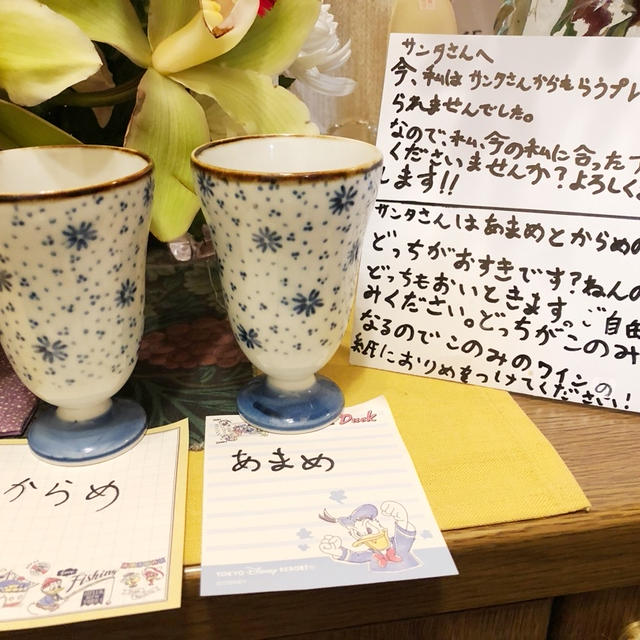 サンタさんへ
今、私はサンタさんからもらうプレ
られませんでした。
なので、私、今の私に合った
くださいませんか？よろしく
します!!
サンタさんはあまめとからめの
どっちがおすきです？ねんの
どっちもおいときます。ご自由
みください。どっちがこのみ
なるのでこのみのワイン、の
紙におりめをつけてください！
からめ
Fishing
Duck
あまめ
TOKYO Disney RESORT